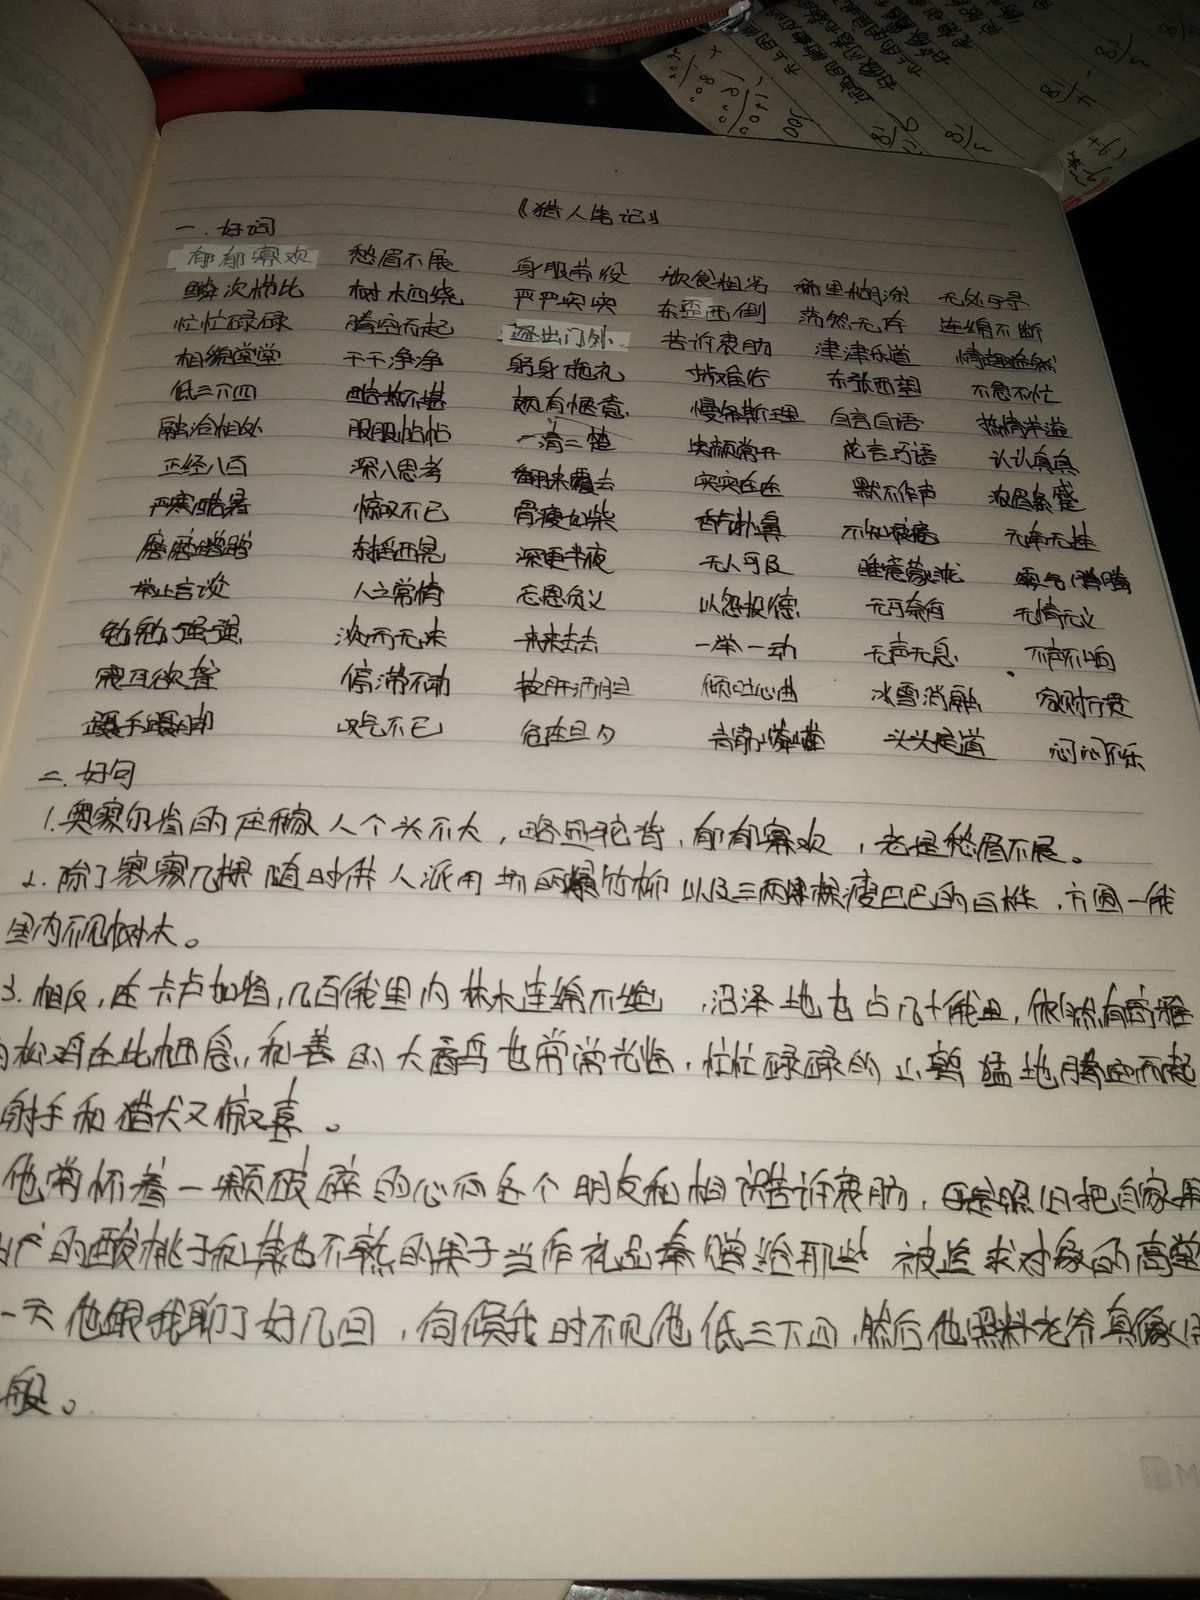 《猎人笔记》
一.好词
郁郁寡欢 愁眉不展 身服劳役 饮食粗劣 稀里糊涂
鳞次栉比 树木四绕 严严实实 东歪西倒 荡然无存 连绵不断
忙忙碌碌 腾空而起 逐出门外 苦诉衷肠 津津乐道 情趣盎然
相貌堂堂 干干净净 躬身施礼 东张西望 不急不忙
低三下四 酷热不堪 颇有惬意 慢条斯理 自言自语 热情洋溢
融洽相处 服服帖帖 一清二楚 笑颜常开 花言巧语 认认真真
正经八百 深入思考 翻来覆去 实实在在 默不作声 浓眉紧蹙
严寒酷暑 惊叹不已 骨瘦如柴 香气扑鼻 不知疲惫 无牵无挂
磨磨蹭蹭 东摇西晃 深更半夜 无人可及 睡意蒙眬 雾气腾腾
举止言谈 人之常情 忘恩负义 以怨报德 无可奈何 无情无义
勉勉强强 次而无来 来来去去 一举一动 无声无息 不声不响
震耳欲聋 停滞不动 披肝沥胆 倾吐心曲 冰雪消融 家财万贯
蹑手蹑脚 叹气不已 危在旦夕 头头是道 闷闷不乐
二.好句
1.奥寥尔省的庄稼人个头不大，略显驼背，郁郁寡欢，老是愁眉不展。
2.除了寥寥几棵随时供人派用场的爆竹柳以及三两棵瘦巴巴的白桦，方圆一俄
里内不见树木。
3.相反，在卡卢加省，几百俄里内林木连绵不绝，沼泽地也占几十俄里，依然有高雅
的松鸡在此栖息，和善的大鹬鸟也常常光临，忙忙碌碌的山鹑猛地腾空而起
射手和猎犬又惊又喜。
他常怀着一颗破碎的心向各个朋友和相识苦诉衷肠，可是照旧把自家果
的酸桃子和其他不熟的果子当作礼品奉赠给那些被追求对象的高堂
一天他跟我聊了好几回，伺候我时不见他低三下四，然后他照料老爷真像
般。